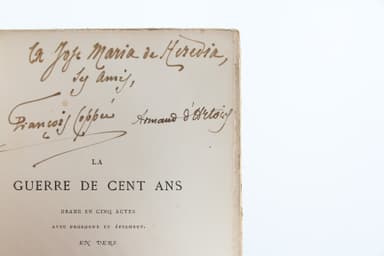 A Jose Maria de Heredia,
Ses amis,
François Coppée Armand d'Artois
LA
GUERRE DE CENT ANS
DRAME EN CINQ ACTES
AVEC PROLOGUE ET ÉPILOGUE,
EN VERS